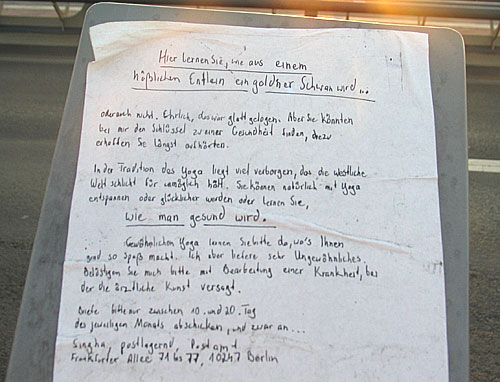 Hier lernen Sie, wie aus einem
häßlichen Entlein ein goldner Schwan wird...
oder auch nicht. Ehrlich, das war glatt gelogen. Aber Sie könnten
bei mir den Schlüssel zu einer Gesundheit finden, die zu
erhoffen Sie längst aufhörten.
In der Tradition des Yoga liegt viel verborgen, das die westliche
Welt schlicht für unmöglich hält. Sie können natürlich mit Yoga
entspannen oder glücklicher werden oder lernen Sie,
wie man gesund wird.
Gewöhnlichen Yoga lernen Sie bitte da, wo's Ihnen
grad so Spaß macht. Ich aber liefere sehr Ungewöhnliches.
Belästigen Sie mich bitte mit Bearbeitung einer Krankheit, bei
der die ärztliche Kunst versagt.
Briefe bitte nur zwischen 10. und 20. Tag
des jeweiligen Monats abschicken, und zwar an...
Singha, postlagernd, Postamt
Frankfurter Allee 71 bis 77, 10247 Berlin